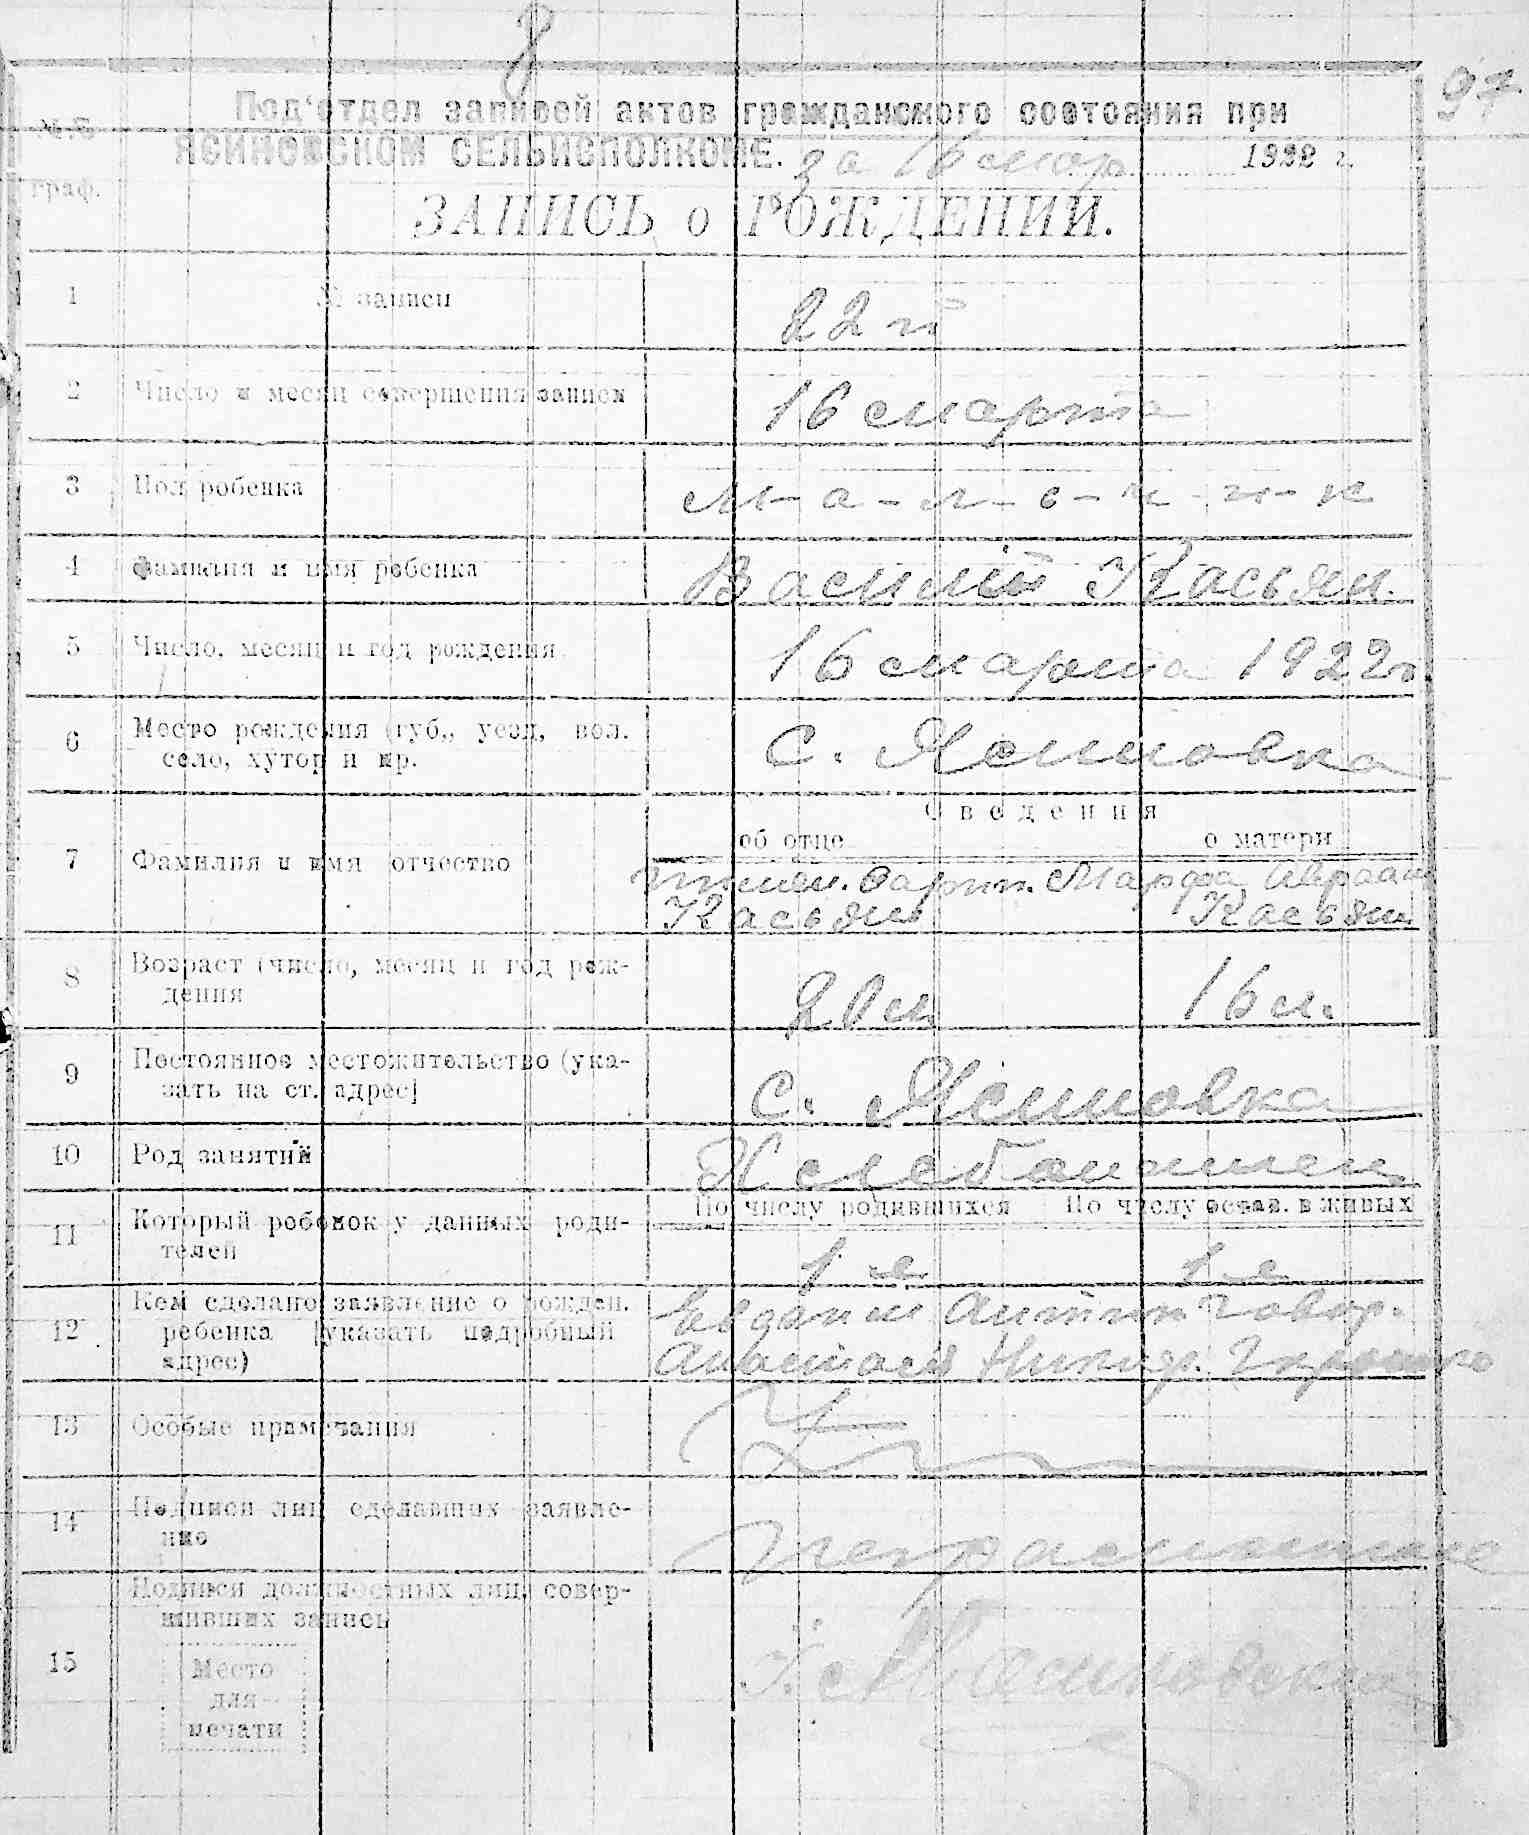 97
№ №
граф.
Под'отдел записей актов гражданского состояния при
ЯСИНОВСКОМ СЕЛЬИСПОЛКОМЕ. за 16 мар 1922 г.
ЗАПИСЬ о РОЖДЕНИИ.
1 № записи 22 й
2 Число и месяц совершения записи 16 марта
3 Пол робенка м-а-л-ь-ч-и-к
4 Фамилия и имя ребенка Василий Касьян.
5 Число, месяц и год рождения 16 марта 1922 г
6 Место рождения (губ., уезд, вол. С. Ясиновка
село, хутор и пр.
Сведения
об отце о матери
7 Фамилия и имя отчество Марфа Авраам
Касьян Касьян
8 Возраст (число, месяц и год рож- 20 л 16 л.
дения
9 Постоянное местожительство (ука- С. Ясиновка
зать на ст. адрес)
10 Род занятий Хлебопашец
По числу родившихся По числу остав. в живых
11 Который робенок у данных роди-
телей 1 е 1 е
12 Кем сделано заявление о рожден.
ребенка (указать подробный
адрес)
13 Особые примечания
14 Подписи лиц сделавших заявле-
ние
Подписи должностных лиц, совер-
шивших запись
15 Место
для
печати